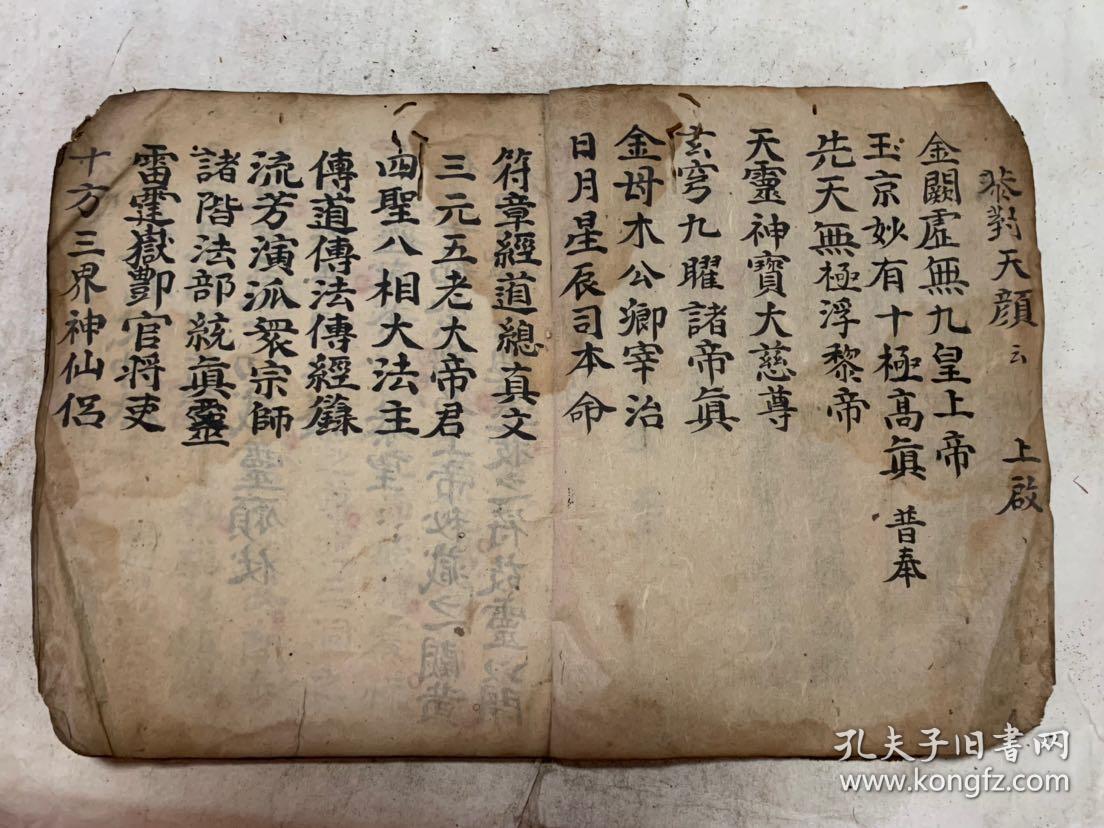 恭對天顏云 上啟
金闕虛無九皇上帝
玉京妙有十極高眞 普奉
先天無極浮黎帝
天靈神寶大慈尊
玄穹九曜諸帝眞
金母木公卿宰治
日月星辰司本命
符章經道總真文
三元五老大帝君
四聖八相大法主
傳道傳法傳經籙
流芳演派眾宗師
諸階法部統眞靈
雷霆嶽酆官将吏
十方三界神仙侣
孔夫子旧书网
www.kongfz.com